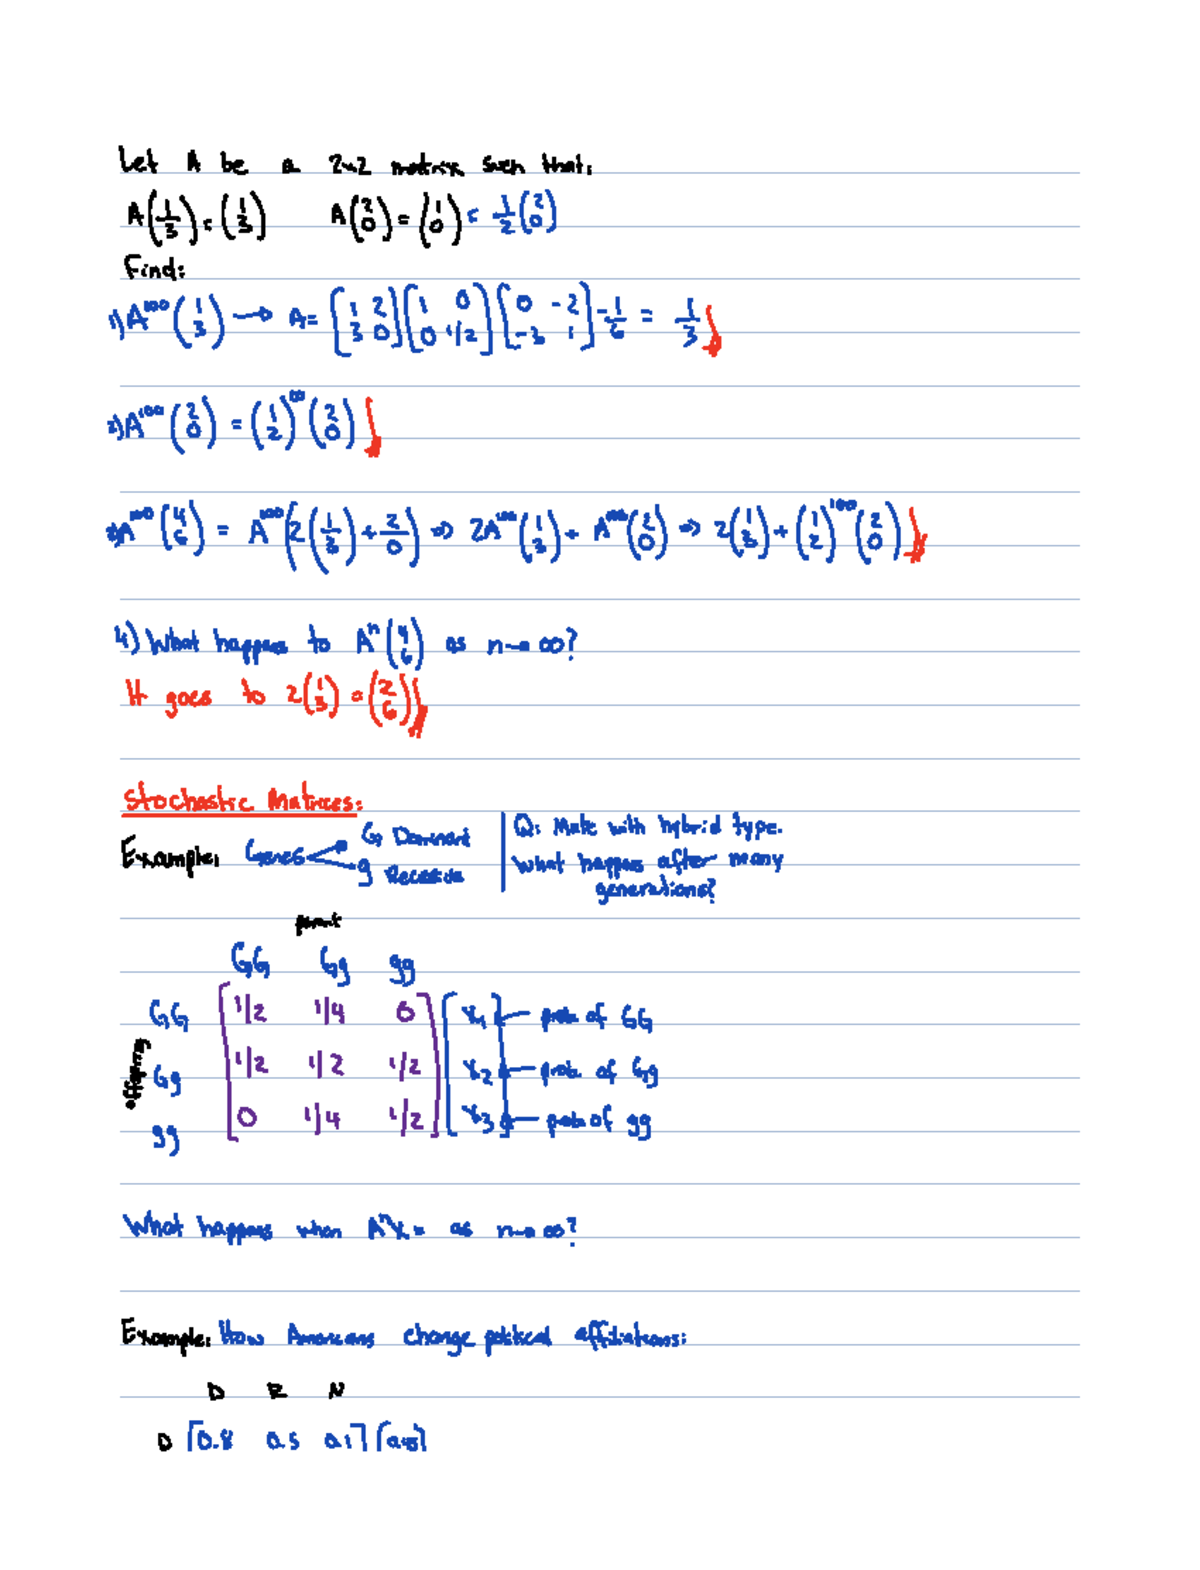 Let A be a 2x2 matrix such that:
A(1 3) = (1 3)   A(2 0) = (1 0) = 1/2 (2 0)
Find:
1) A^100 (1 3) → A = [1 2 3 0] [1 0 0 1/2] [0 -2 -3 1] -1/6 = 1/3
2) A^100 (2 0) = (1/2)^100 (2 0)
3) A^100 (4 6) = A^100 (2(1 3) + 2/0) ⇒ 2A^100 (1 3) + A^100 (2 0) ⇒ 2(1 3) + (1/2)^100 (2 0)
4) What happens to A^n (4 6) as n→∞?
It goes to 2(1 3) = (2 6)
Stochastic Matrices:
Example: Genes G Dominant g Recessive
Q: Mate with hybrid type.
What happens after many
generations?
parent
GG Gg gg
GG [1/2 1/4 0] [x1] ← prob of GG
offspring
Gg [1/2 1/2 1/2] [x2] ← prob. of Gg
gg [0 1/4 1/2] [x3] ← prob of gg
What happens when A^n x = as n→∞?
Example: How Americans change political affiliations:
D R N
D [0.8 0.5 0.1]